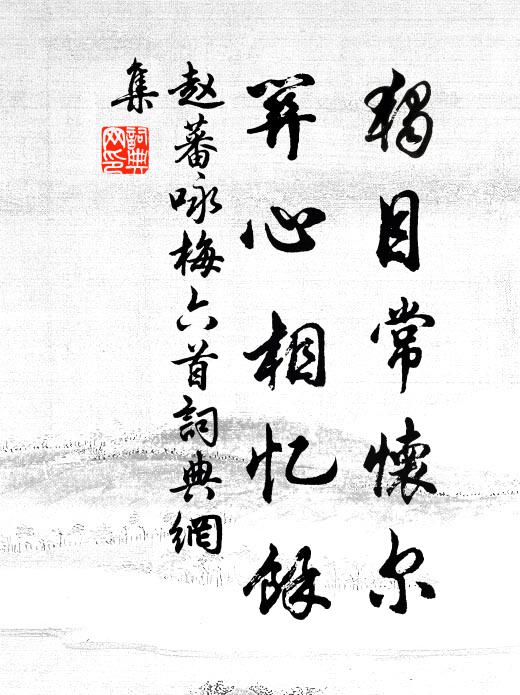 獨目常懷尔
關心相忆餘
赵蕃咏梅六首詞典網
集
詞典网印